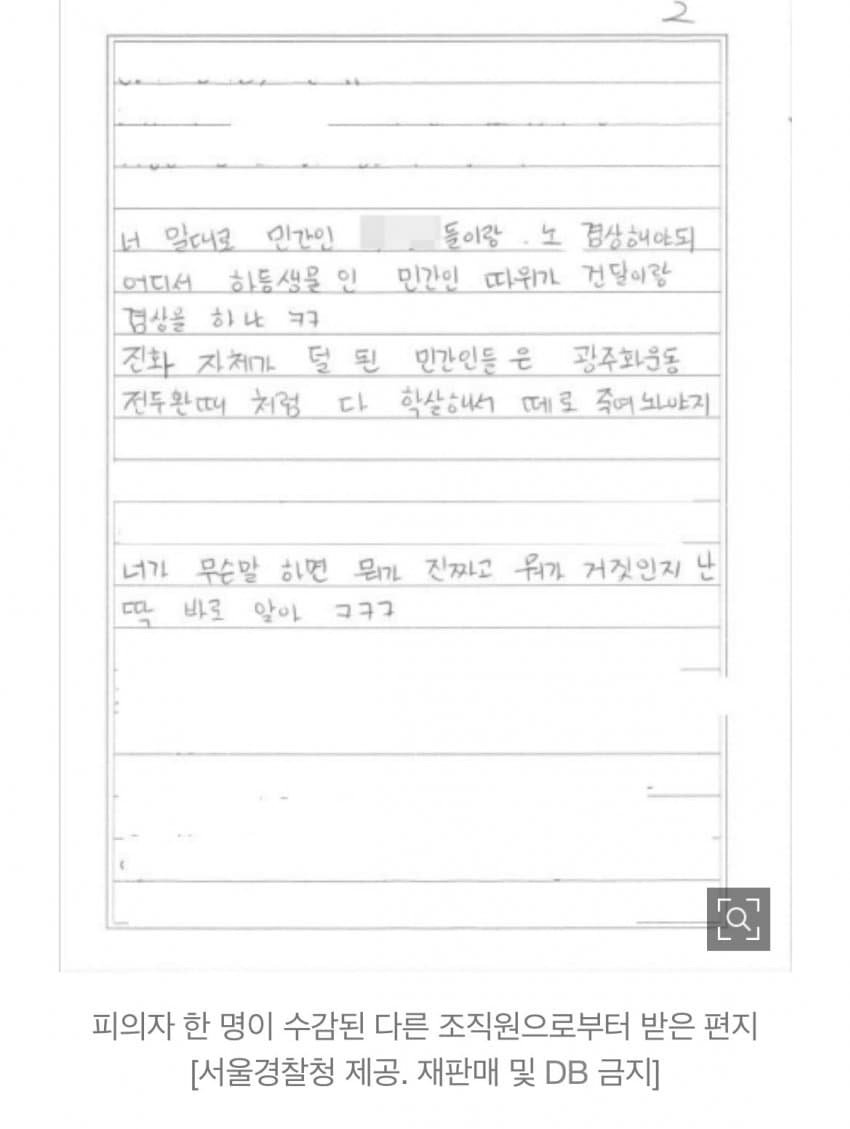 2
너 말대로 민간인 들이랑 . 노 겸상해야되
어디서 하등생물 인 민간인 따위가 건달이랑
겸상을 하냐 ㅋㅋ
진화 자체가 덜 된 민간인들은 광주화운동
전두환때 처럼 다 학살해서 떼로 죽여놔야지
너가 무슨말 하면 뭐가 진짜고 뭐가 거짓인지 난
딱 바로 알아 ㅋㅋㅋ
피의자 한 명이 수감된 다른 조직원으로부터 받은 편지
[서울경찰청 제공. 재판매 및 DB 금지]